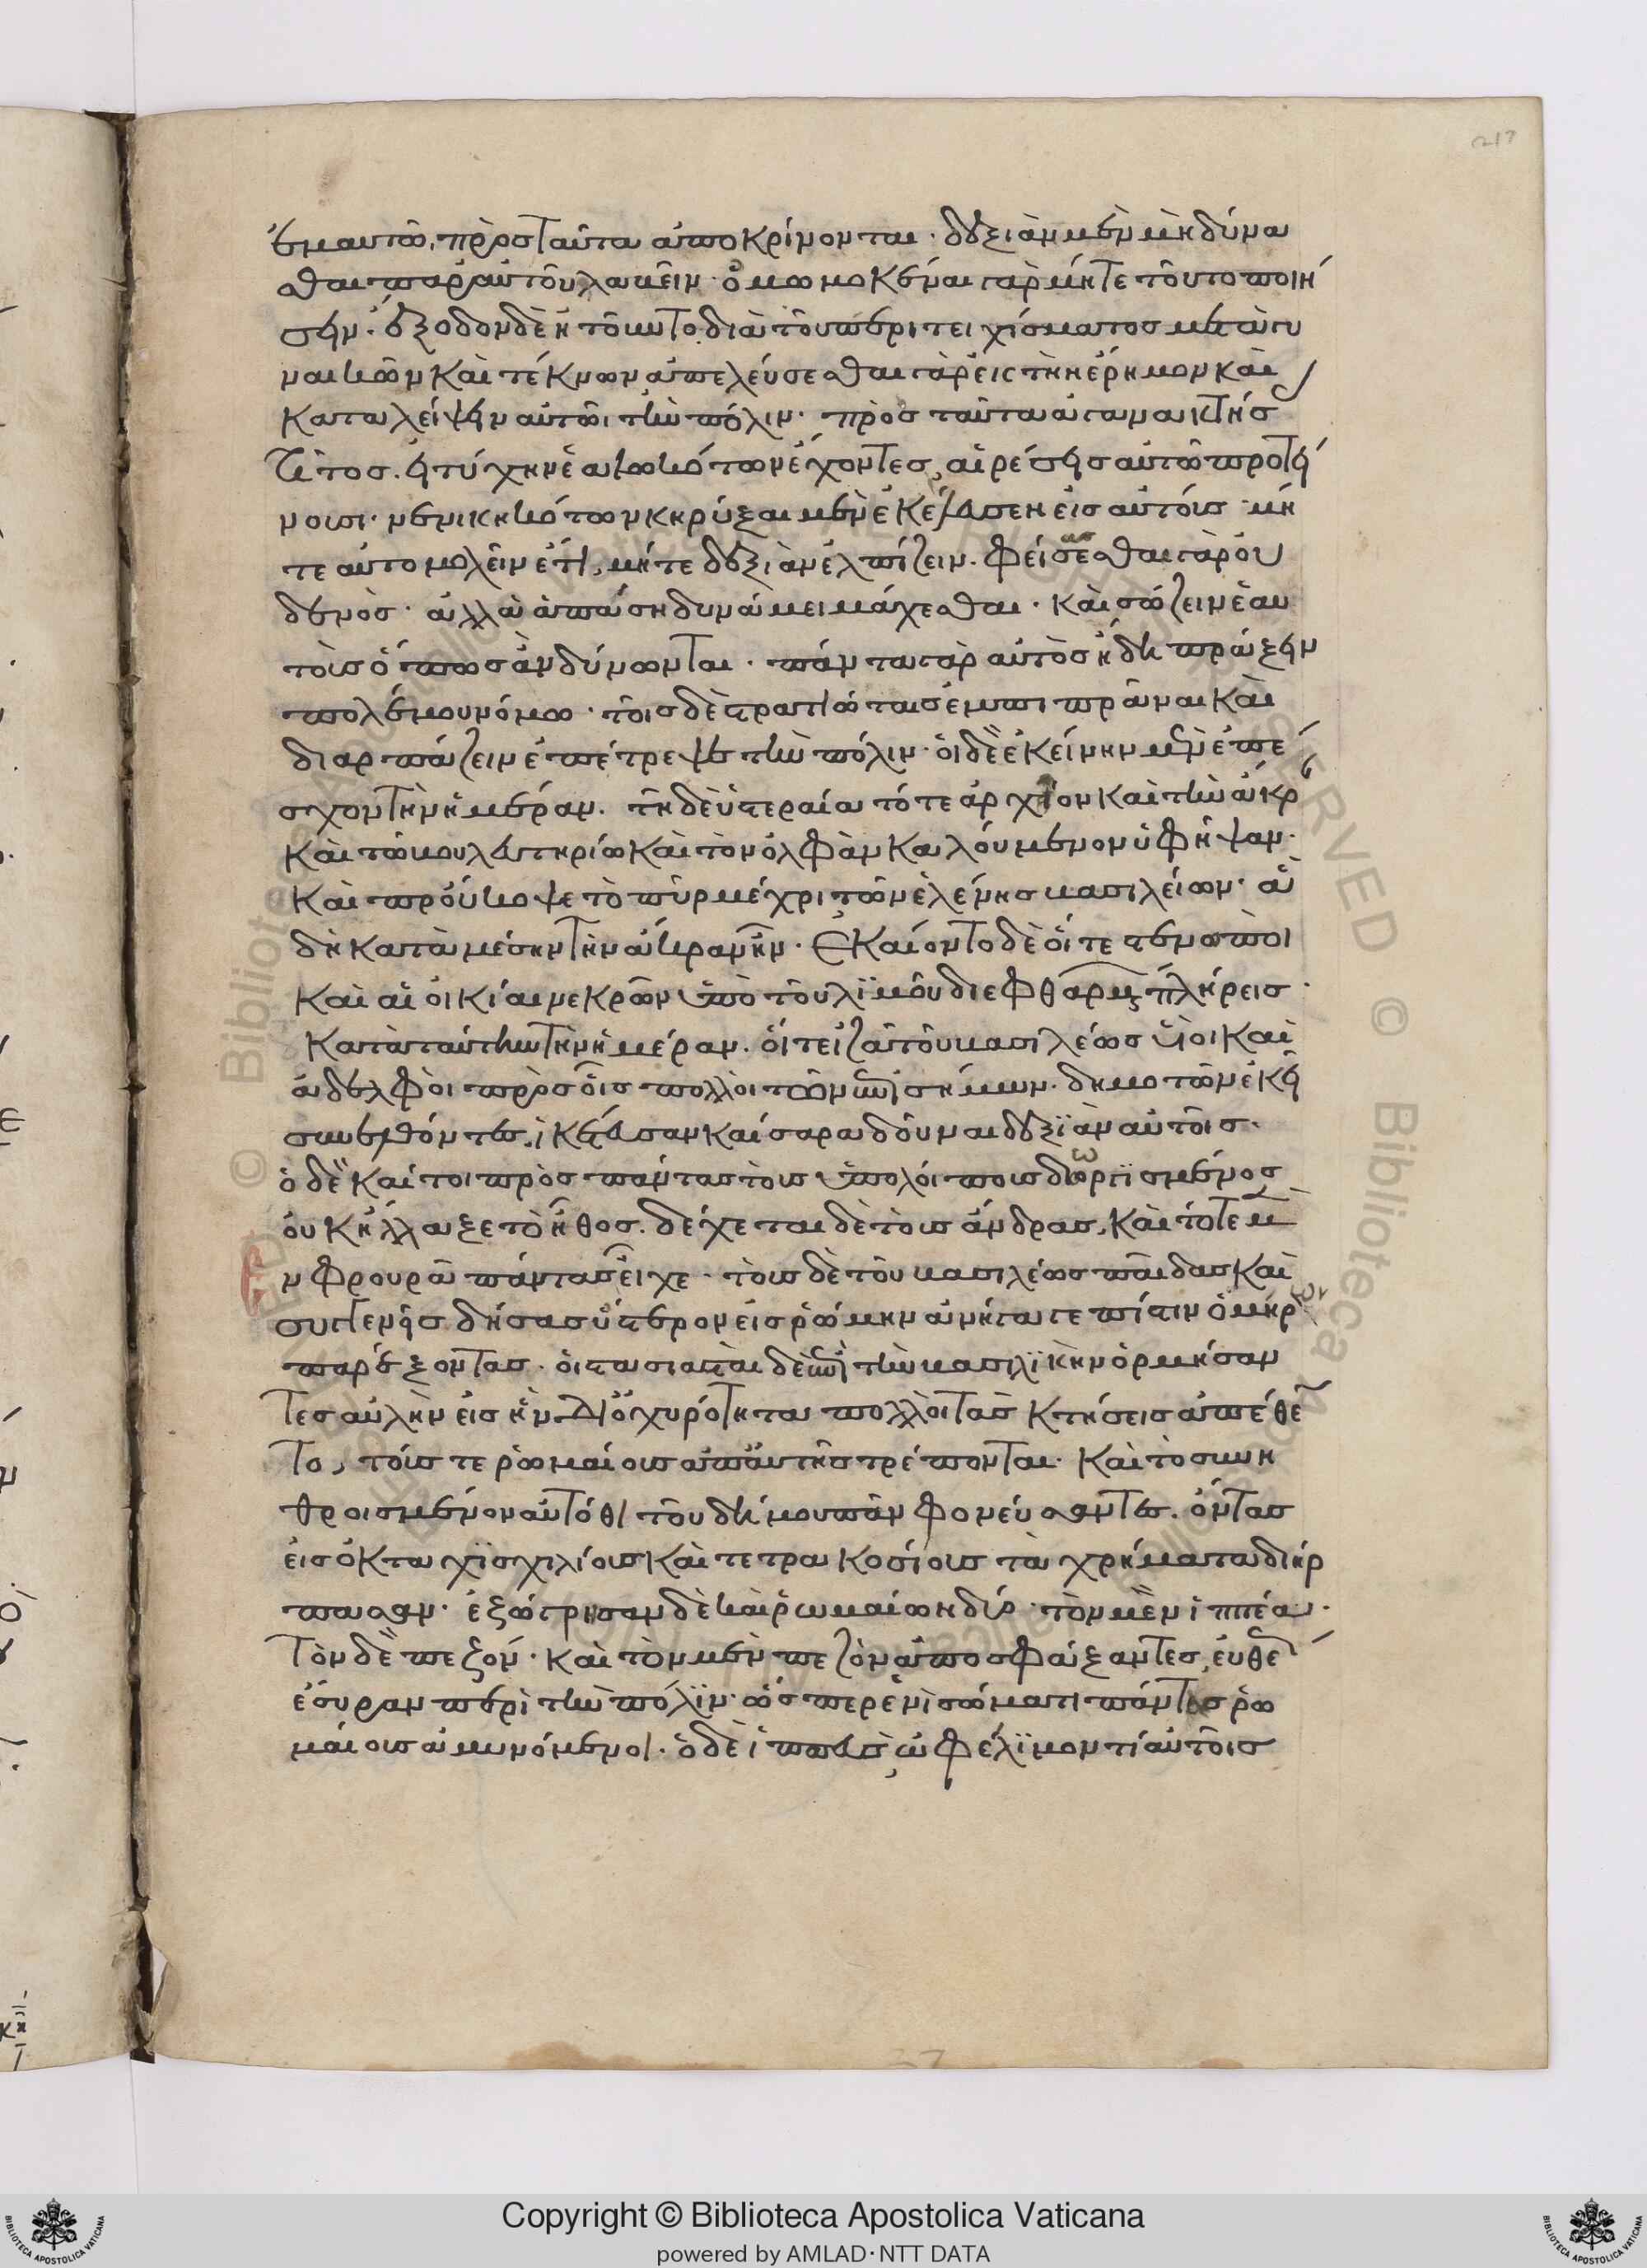 ἐμαυτῶ, πρὸς ταῦτα ἀποκρίνονται· δεξιὰν μὲν μὴ δύνα
σθαι παρ' αὐτοῦ λαβεῖν· ὀμωμοκέναι γὰρ μήτε τοῦτο ποιή
σειν. ἔξοδον δὲ ἠτοῦντο διὰ τοῦ περιτειχίσματος μετὰ γυ
ναικῶν καὶ τέκνων ἀπελεύσεσθαι γὰρ εἰς τὴν ἔρημον καὶ
καταλείψειν αὐτῶι τὴν πόλιν· πρὸς ταῦτα ἀγανακτήσ
Τίτος. εἰ τύχην ἑαλωκότων ἔχοντες, αἱρέσεις αὐτῶ προτεί
νουσι· νενικηκότων κηρύξαι μὲν ἐκέλευσεν εἰς αὐτοὺς μή
τε αὐτομολεῖν ἔτι, μήτε δεξιὰν ἐλπίζειν. φείσεσθαι γὰρ οὐ
δενὸς· ἀλλὰ ἁπάσῃ δυνάμει μάχεσθαι· καὶ σώζειν ἑαυ
τοὺς ὅπως ἂν δύνωνται· πάντα γὰρ αὐτὸς ἤδη πράξειν
πολέμου νόμω· τοῖς δὲ στρατιώταις ἐμπιπρᾶναι καὶ
διαρπάζειν ἐπέτρεψε τὴν πόλιν· οἱ δὲ ἐκείνην μὲν ἐπέ
σχον τὴν ἡμέραν. τῆ δὲ ὑστεραία τό τε ἀρχεῖον καὶ τὴν ἄκρ
καὶ τῶ βουλευτηρίω καὶ τὸν ὀλφὰν καλούμενον ὑφῆψαν·
καὶ προύκοψε τὸ πῦρ μέχρι τῶν ἑλένης βασιλείων· ἃ
δὴ κατὰ μέσην τὴν ἄκραν ἦν· Ἐκαίοντο δὲ οἵ τε στενωποὶ
καὶ αἱ οἰκίαι νεκρῶν ὑπὸ τοῦ λιμοῦ διεφθαρμένων πλήρεις·
κατὰ ταύτην τὴν ἡμέραν. οἵ τε ἰζάτου βασιλέως υἱοὶ καὶ
ἀδελφοὶ πρὸς οἷς πολλοὶ τῶν ἐπισήμων. δημοτῶν ἐκεῖ
συνελθόντες, ἱκέτευσαν καίσαρα δοῦναι δεξιὰν αὐτοῖς·
ὁ δὲ καίτοι πρὸς πάντας τοὺς ὑπολοίπους διωργισμένος
οὐκ ἤλλαξε τὸ ἦθος. δέχεται δὲ τοὺς ἄνδρας, καὶ τότε μὲ
ν φρουρᾶ πάντας εἶχε· τοὺς δὲ τοῦ βασιλέως παῖδας καὶ
συγγενεῖς δήσας ὕστερον εἰς ῥώμην ἀνήγαγε πίστιν ὁμήρων
παρέξοντας· οἱ στασιασταὶ δὲ ἐπὶ τὴν βασιλικὴν ὁρμήσαν
τες αὐλὴν εἰς ἣν δι' ὀχυρότητα πολλοὶ τὰς κτήσεις ἀπέθεν
το, τούς τε ῥωμαίους ἀπ' αὐτῆς τρέπονται· καὶ τὸ συνη
θροισμένον αὐτόθι τοῦ δήμου πᾶν φονεύσαντες. ὄντας
εἰς ὀκτακισχιλίους καὶ τετρακοσίους τὰ χρήματα διήρ
πασαν· ἐζώγρησαν δὲ καὶ ῥωμαίων δύο· τὸν μὲν ἱππέα·
τὸν δὲ πεζόν· καὶ τὸν μὲν πεζὸν ἀποσφάξαντες, εὐθέως
ἔσυραν περὶ τὴν πόλιν· ὥσπερ ἑνὶ σώματι πάντας ῥω
μαίους ἀμυνόμενοι· ὁ δὲ ἱππεὺς ὠφέλιμόν τι αὐτοῖς